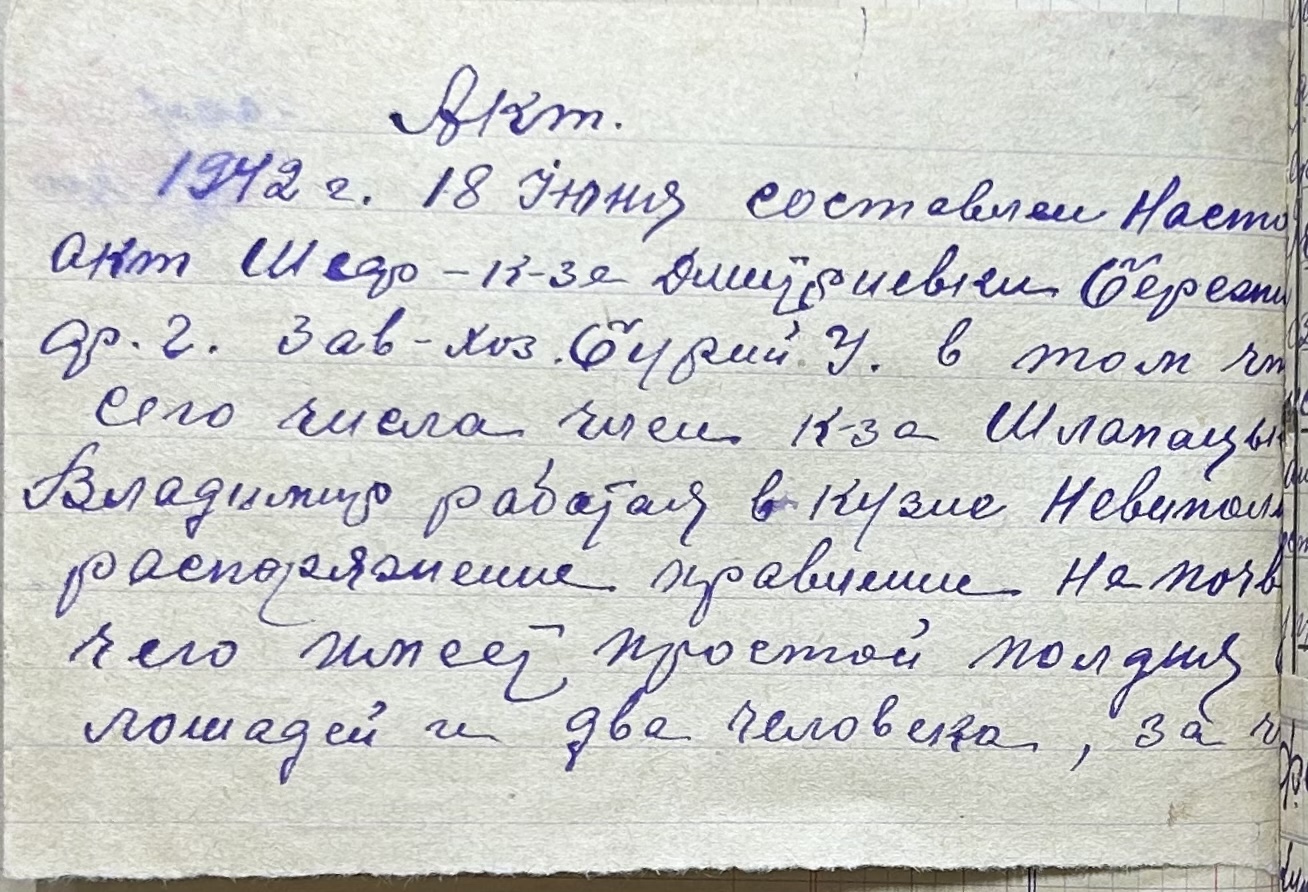 Акт.
1942 г. 18 Июня составлен Насто
акт Шедр - к-за Дмитриевки Бережн
др. г. Зав-хоз. Бурий У. в том чт
сего числа член к-за Шлапацы
Владимир работая в кузне Невиполн
распоряжение правление На почв
чего имеет простой полдня
лошадей и два человека, за ч